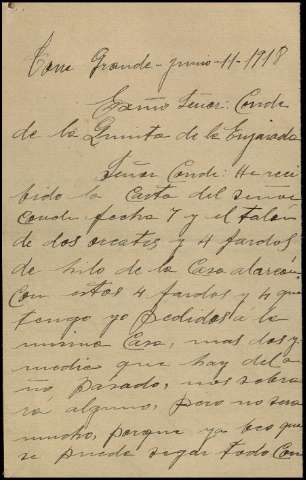 Torre Grande - junio - 11 - 1918
Exmo Señor: Conde
de la Quinta de la Enjarada
Señor Conde: He reci
bido la Carta del señor
Conde fecha 7 y el talon
de los y 4 fardos
de hilo de la Casa alarcón.
Con estos 4 fardos y 4 que
tengo yo pedidos á la
misma Casa, mas dos y
medio que hay del a
ño pasado, nos sobra
ra alguno, pero no sera
mucho, porque ya beo que
se puede segar todo Con